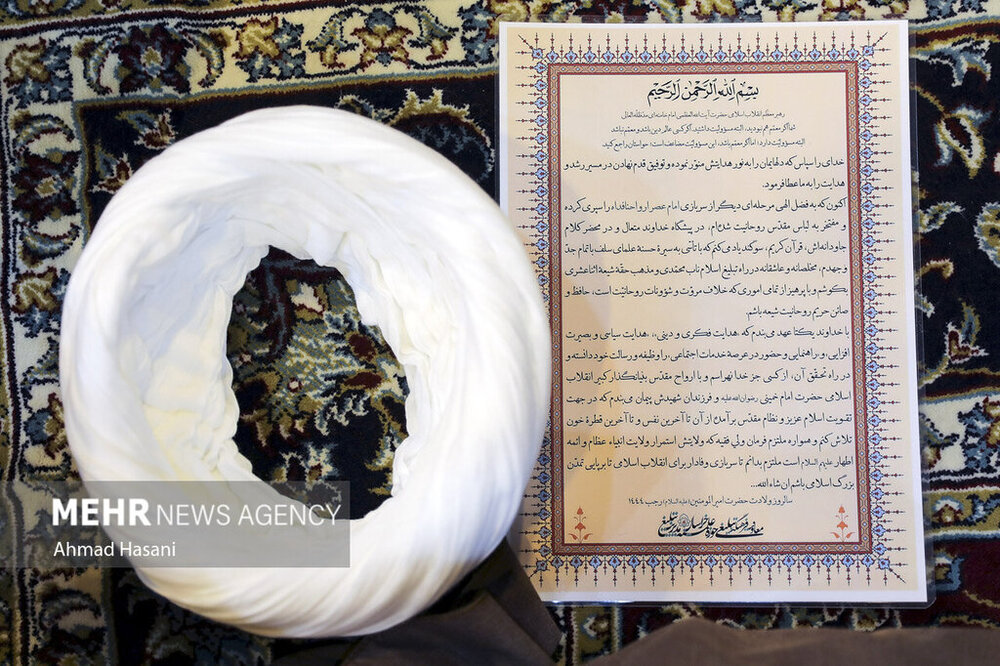 بسم الله الرحمن الرحیم
رهبر معظم انقلاب اسلامی حضرت آیت الله العظمی امام خامنه‌ای مدظله العالی
شما اگر معمم هم نبودید، البته مسؤولیت داشتید. اگر کسی عالم دین باشد و معمم نباشد
البته مسؤولیت دارد؛ اما اگر معمم باشد، این مسؤولیت مضاعف است؛ حواستان را جمع کنید
خدای را سپاس که دلهایمان را به نور هدایتش منوّر نموده و توفیق قدم نهادن در مسیر رشد و
هدایت را به ما عطا فرمود.
اکنون که به فضل الهی مرحله‌ای دیگر از سربازی امام عصر ارواحنا فداه را سپری کرده
و مفتخر به لباس مقدّس روحانیت شده‌ام، در پیشگاه خداوند متعال و در محضر کلام
جاودانه‌اش، قرآن کریم، سوگند یاد می‌کنم که با تأسّی به سیرۀ حسنۀ علمای سلف با تمام جدّ
و جهدم، مخلصانه و عاشقانه در راه تبلیغ اسلام ناب محمّدی و مذهب حقّۀ شیعۀ اثناعشری
بکوشم و با پرهیز از تمامی اموری که خلاف مروّت و شؤونات روحانیّت است، حافظ و
صائن حریم روحانیت شیعه باشم.
با خداوند یکتا عهد می‌بندم که، هدایت فکری و دینی، ، هدایت سیاسی و بصیرت
افزایی، و ، راهنمایی و حضور در عرصه خدمات اجتماعی، را وظیفه و رسالت خود دانسته و
در راه تحقق آن، از کسی جز خدا نهراسم و با ارواح مقدّس بنیانگذار کبیر انقلاب
اسلامی حضرت امام خمینی رضوان الله علیه و فرزندان شهیدش پیمان می‌بندم که در جهت
تقویت اسلام عزیز و نظام مقدّس برآمده از آن تا آخرین نفس و تا آخرین قطرۀ خون
تلاش کنم و همواره ملتزم فرمان ولی فقیه که ولایتش استمرار ولایت انبیاء عظام و ائمه
اطهار علیهم السلام است ملتزم بدانم تا سربازی وفادار برای انقلاب اسلامی تا برپایی تمدّن
بزرگ اسلامی باشم ان شاء الله...
سالروز ولادت حضرت امیرالمومنین (علیه السلام)، رجب ۱۴۴۴
MEHR NEWS AGENCY
Ahmad Hasani